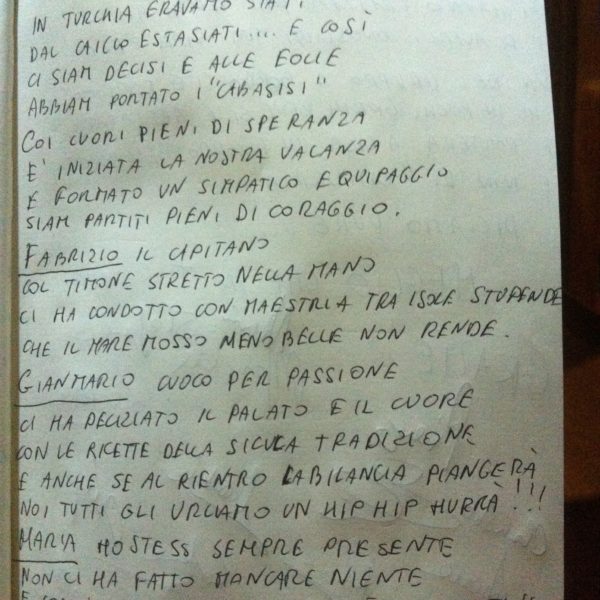 IN TURCHIA ERAVAMO STATI
DAL CAICCO ESTASIATI.... E COSÌ
CI SIAM DECISI E ALLE EOLIE
ABBIAM PORTATO I "CABASISI"
COI CUORI PIENI DI SPERANZA
E' INIZIATA LA NOSTRA VACANZA
E FORMATO UN SIMPATICO EQUIPAGGIO
SIAM PARTITI PIENI DI CORAGGIO.
FABRIZIO IL CAPITANO
COL TIMONE STRETTO NELLA MANO
CI HA CONDOTTO CON MAESTRIA TRA ISOLE STUPENDE
CHE IL MARE MOSSO MENO BELLE NON RENDE.
GIANMARIO CUOCO PER PASSIONE
CI HA DELIZIATO IL PALATO E IL CUORE
CON LE RICETTE DELLA SICULA TRADIZIONE
E ANCHE SE AL RIENTRO LA BILANCIA PIANGERÀ
NOI TUTTI GLI URLIAMO UN HIP HIP HURRÀ!!!
MARIA HOSTESS SEMPRE PRESENTE
NON CI HA FATTO MANCARE NIENTE